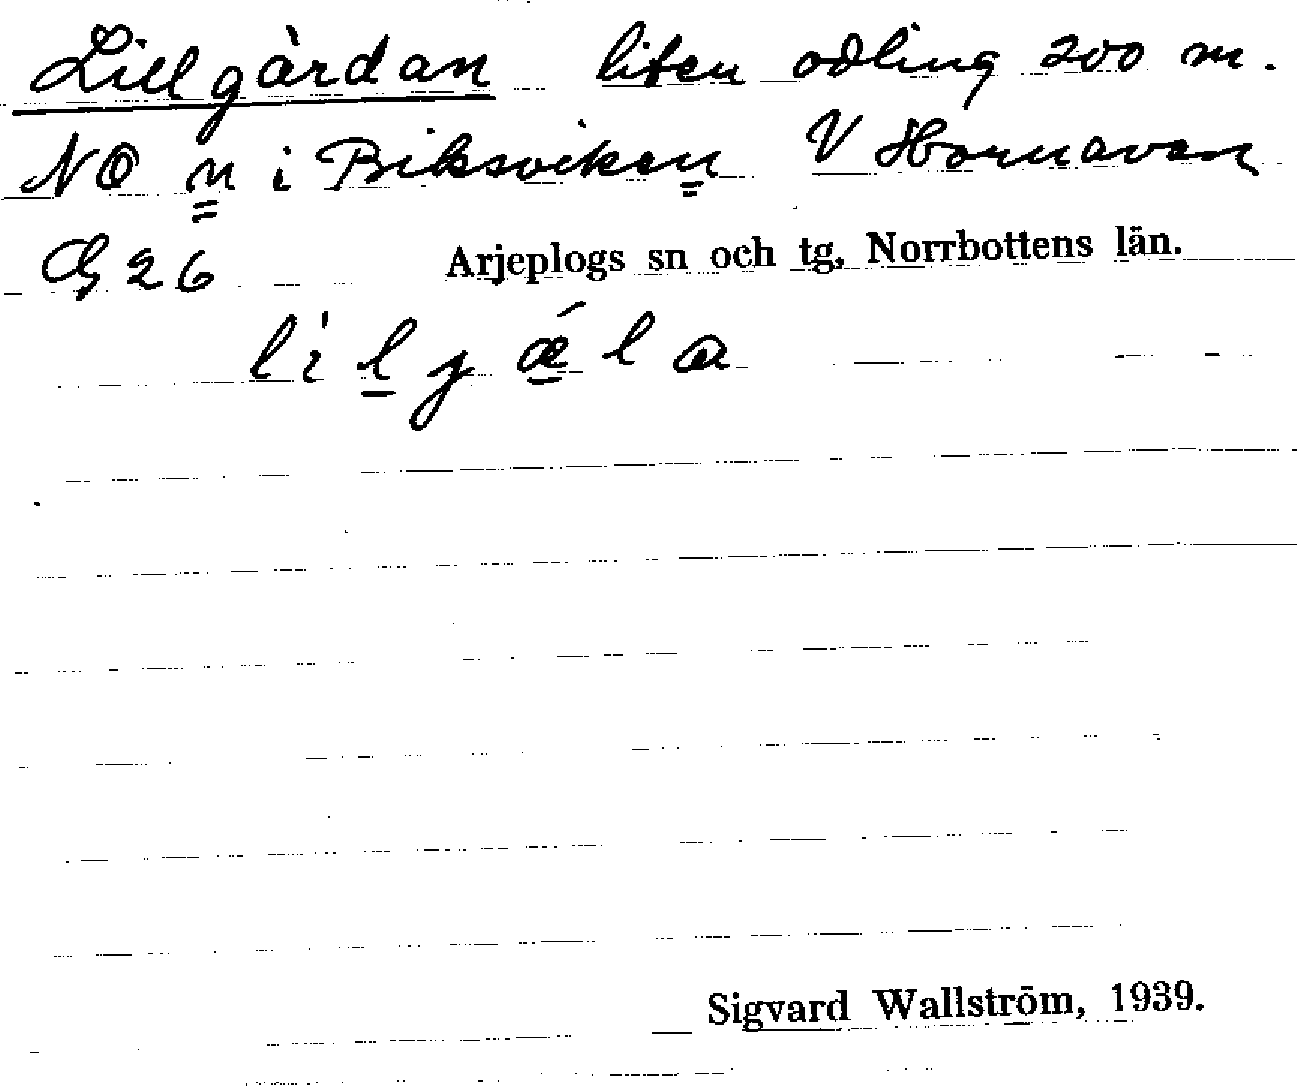 Lillgårdan liten odling 200 m.
NO n i Biksviken V Hornavan
G 26 Arjeplogs sn och tg, Norrbottens län.
lilgǽla
Sigvard Wallström, 1939.